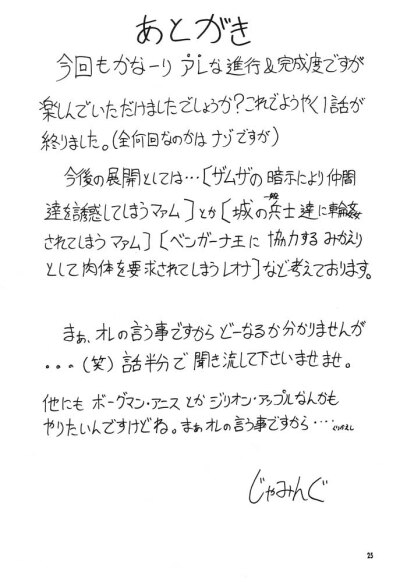 あとがき
今回もかなーり アレな進行&完成度ですが
楽しんでいただけましたでしょうか?これでようやく1話が
終りました。(全何回なのかは ナゾですが)
今後の展開としては…〔ザムザの暗示により仲間
達を誘惑してしまうマァム〕とか〔城の一般兵士達に輪姦
されてしまう マァム〕〔ベンガーナ王に 協力する みかえり
として肉体を要求されてしまうレオナ〕など考えております。
まぁ、オレの言う事ですから どーなるか分かりませんが
・・・(笑) 話半分で 聞き流して下さいませませ。
他にも ボーグマン・アニス とか ジリオン・アップルなんかも
やりたいんですけどね。まぁオレの言う事ですから・・・・
じゃみんぐ
25